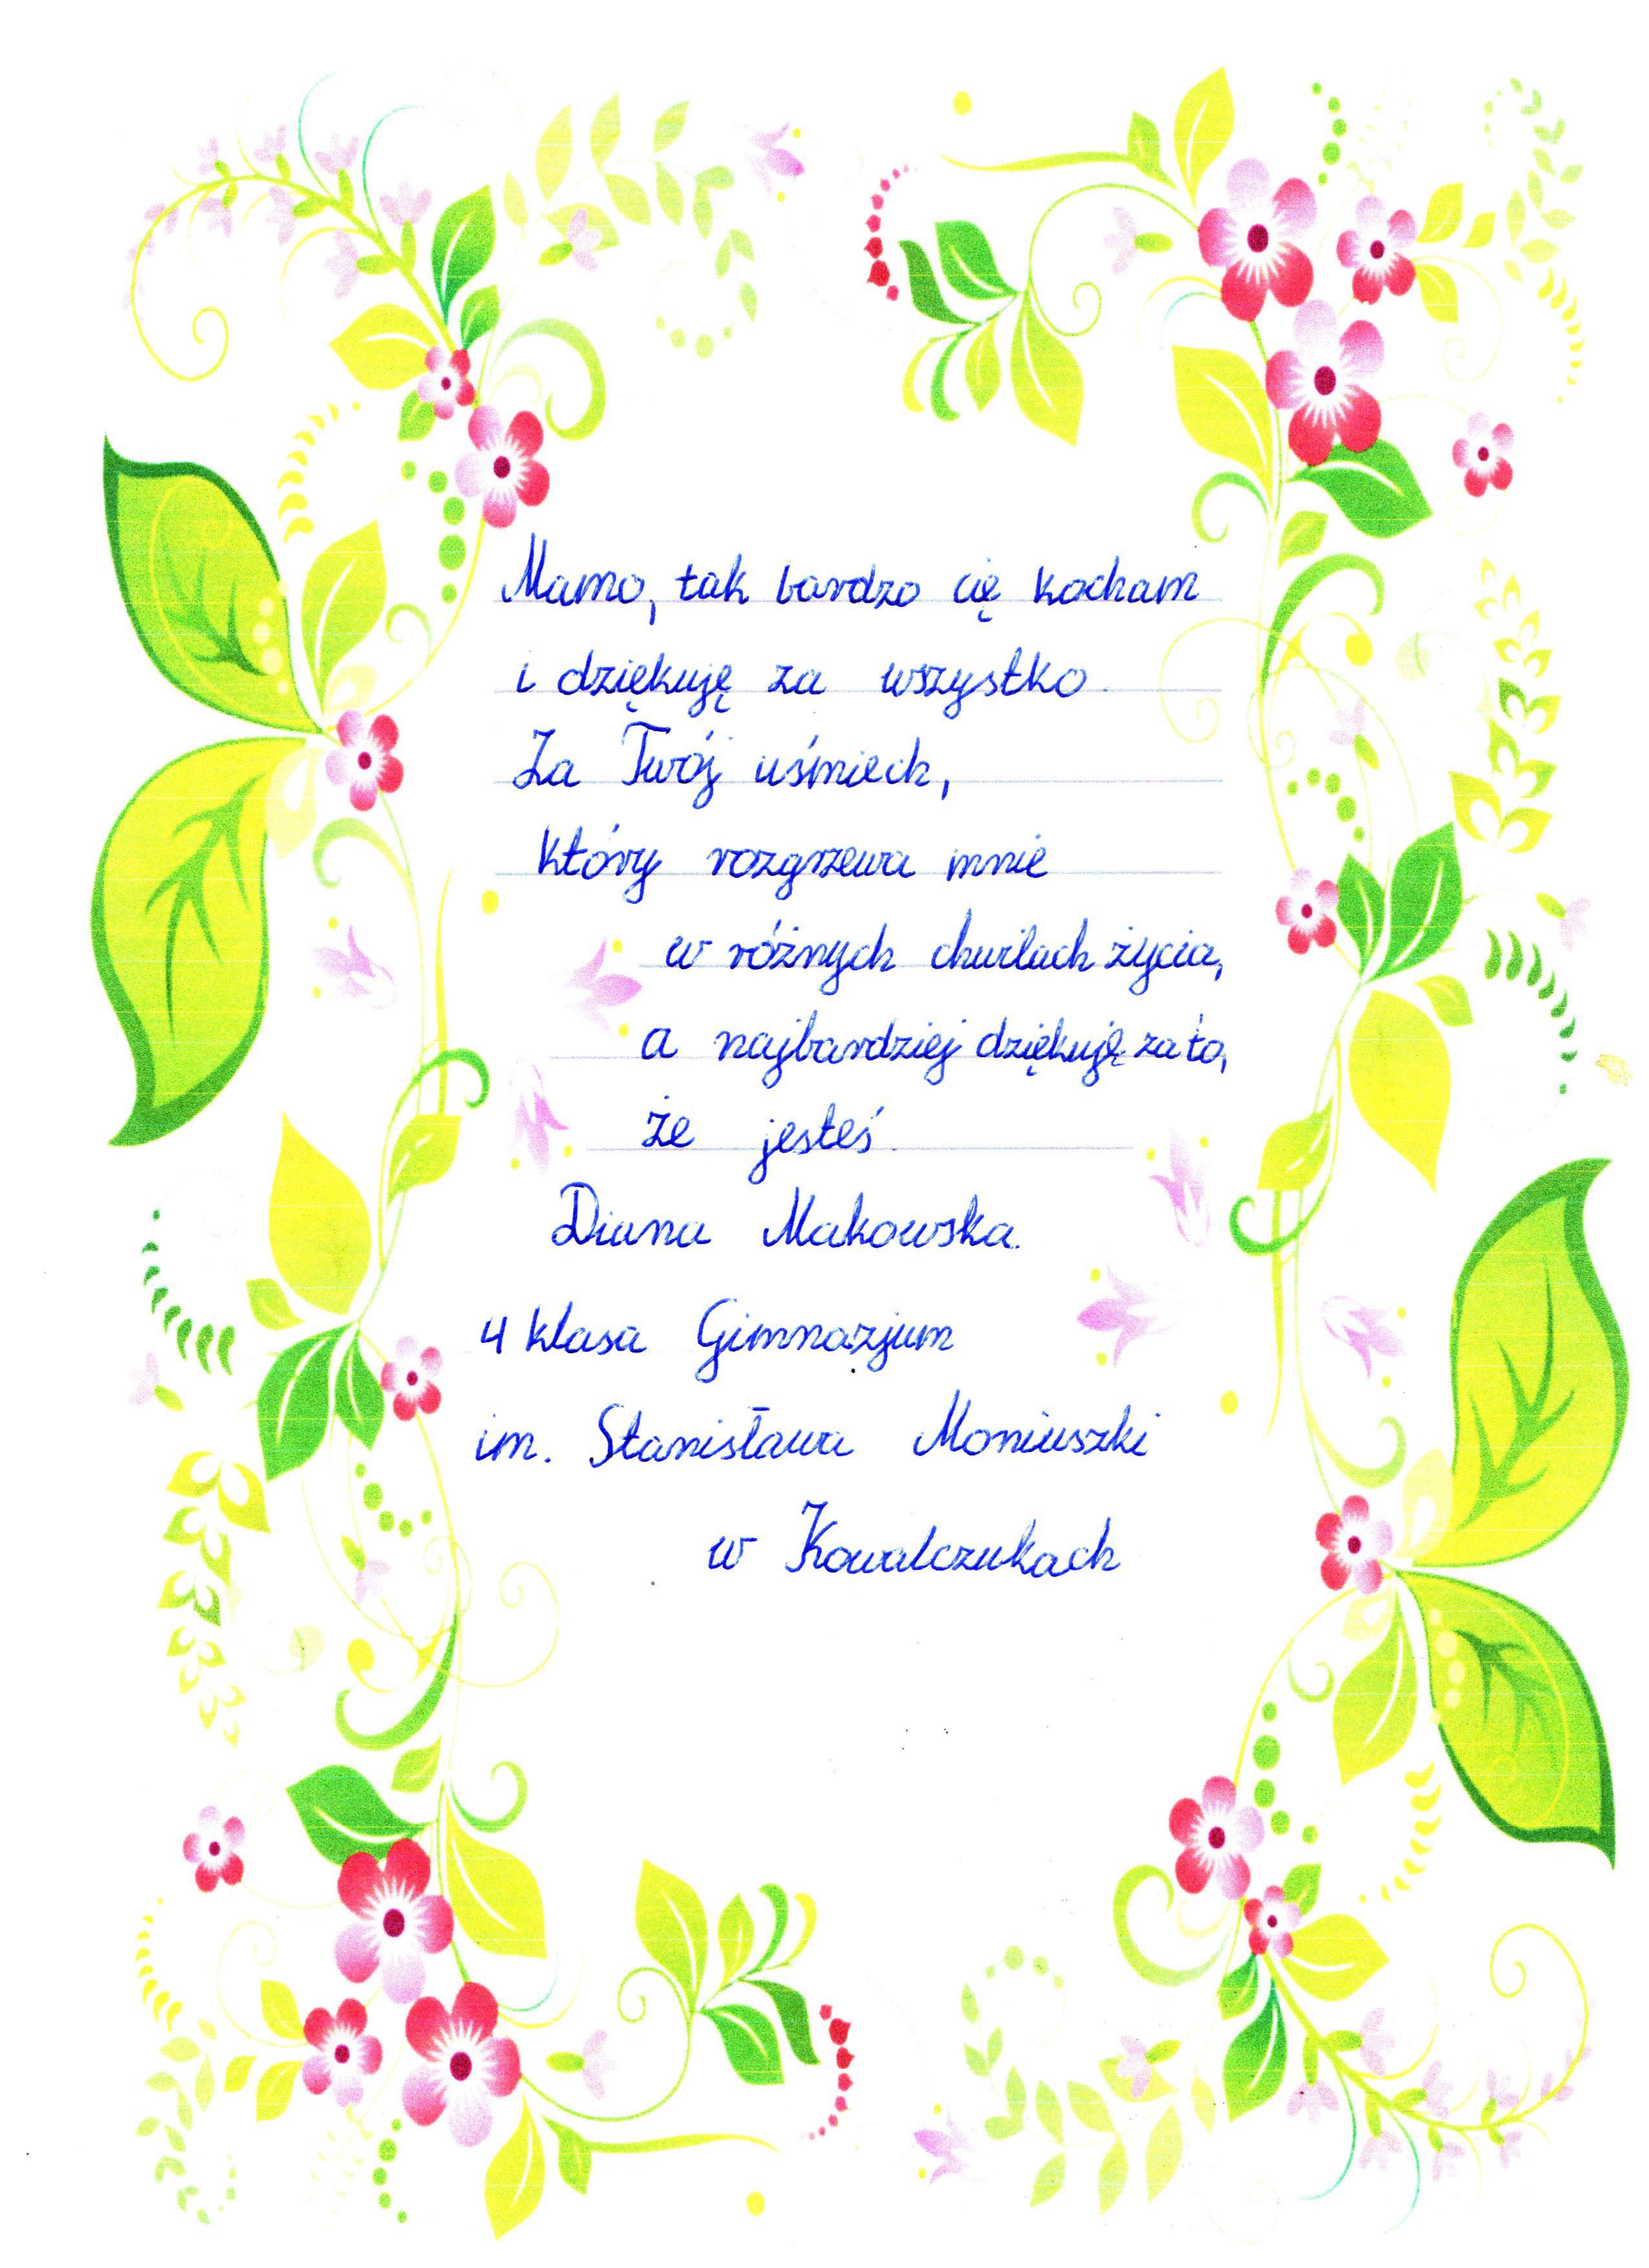 Mamo, tak bardzo cię kocham
i dziękuję za wszystko.
Za Twój uśmiech,
który rozgrzewa mnie
w różnych chwilach życia,
a najbardziej dziękuję za to,
że jesteś.
Diana Makowska.
4 klasa Gimnazjum
im. Stanisława Moniuszki
w Kowalczukach